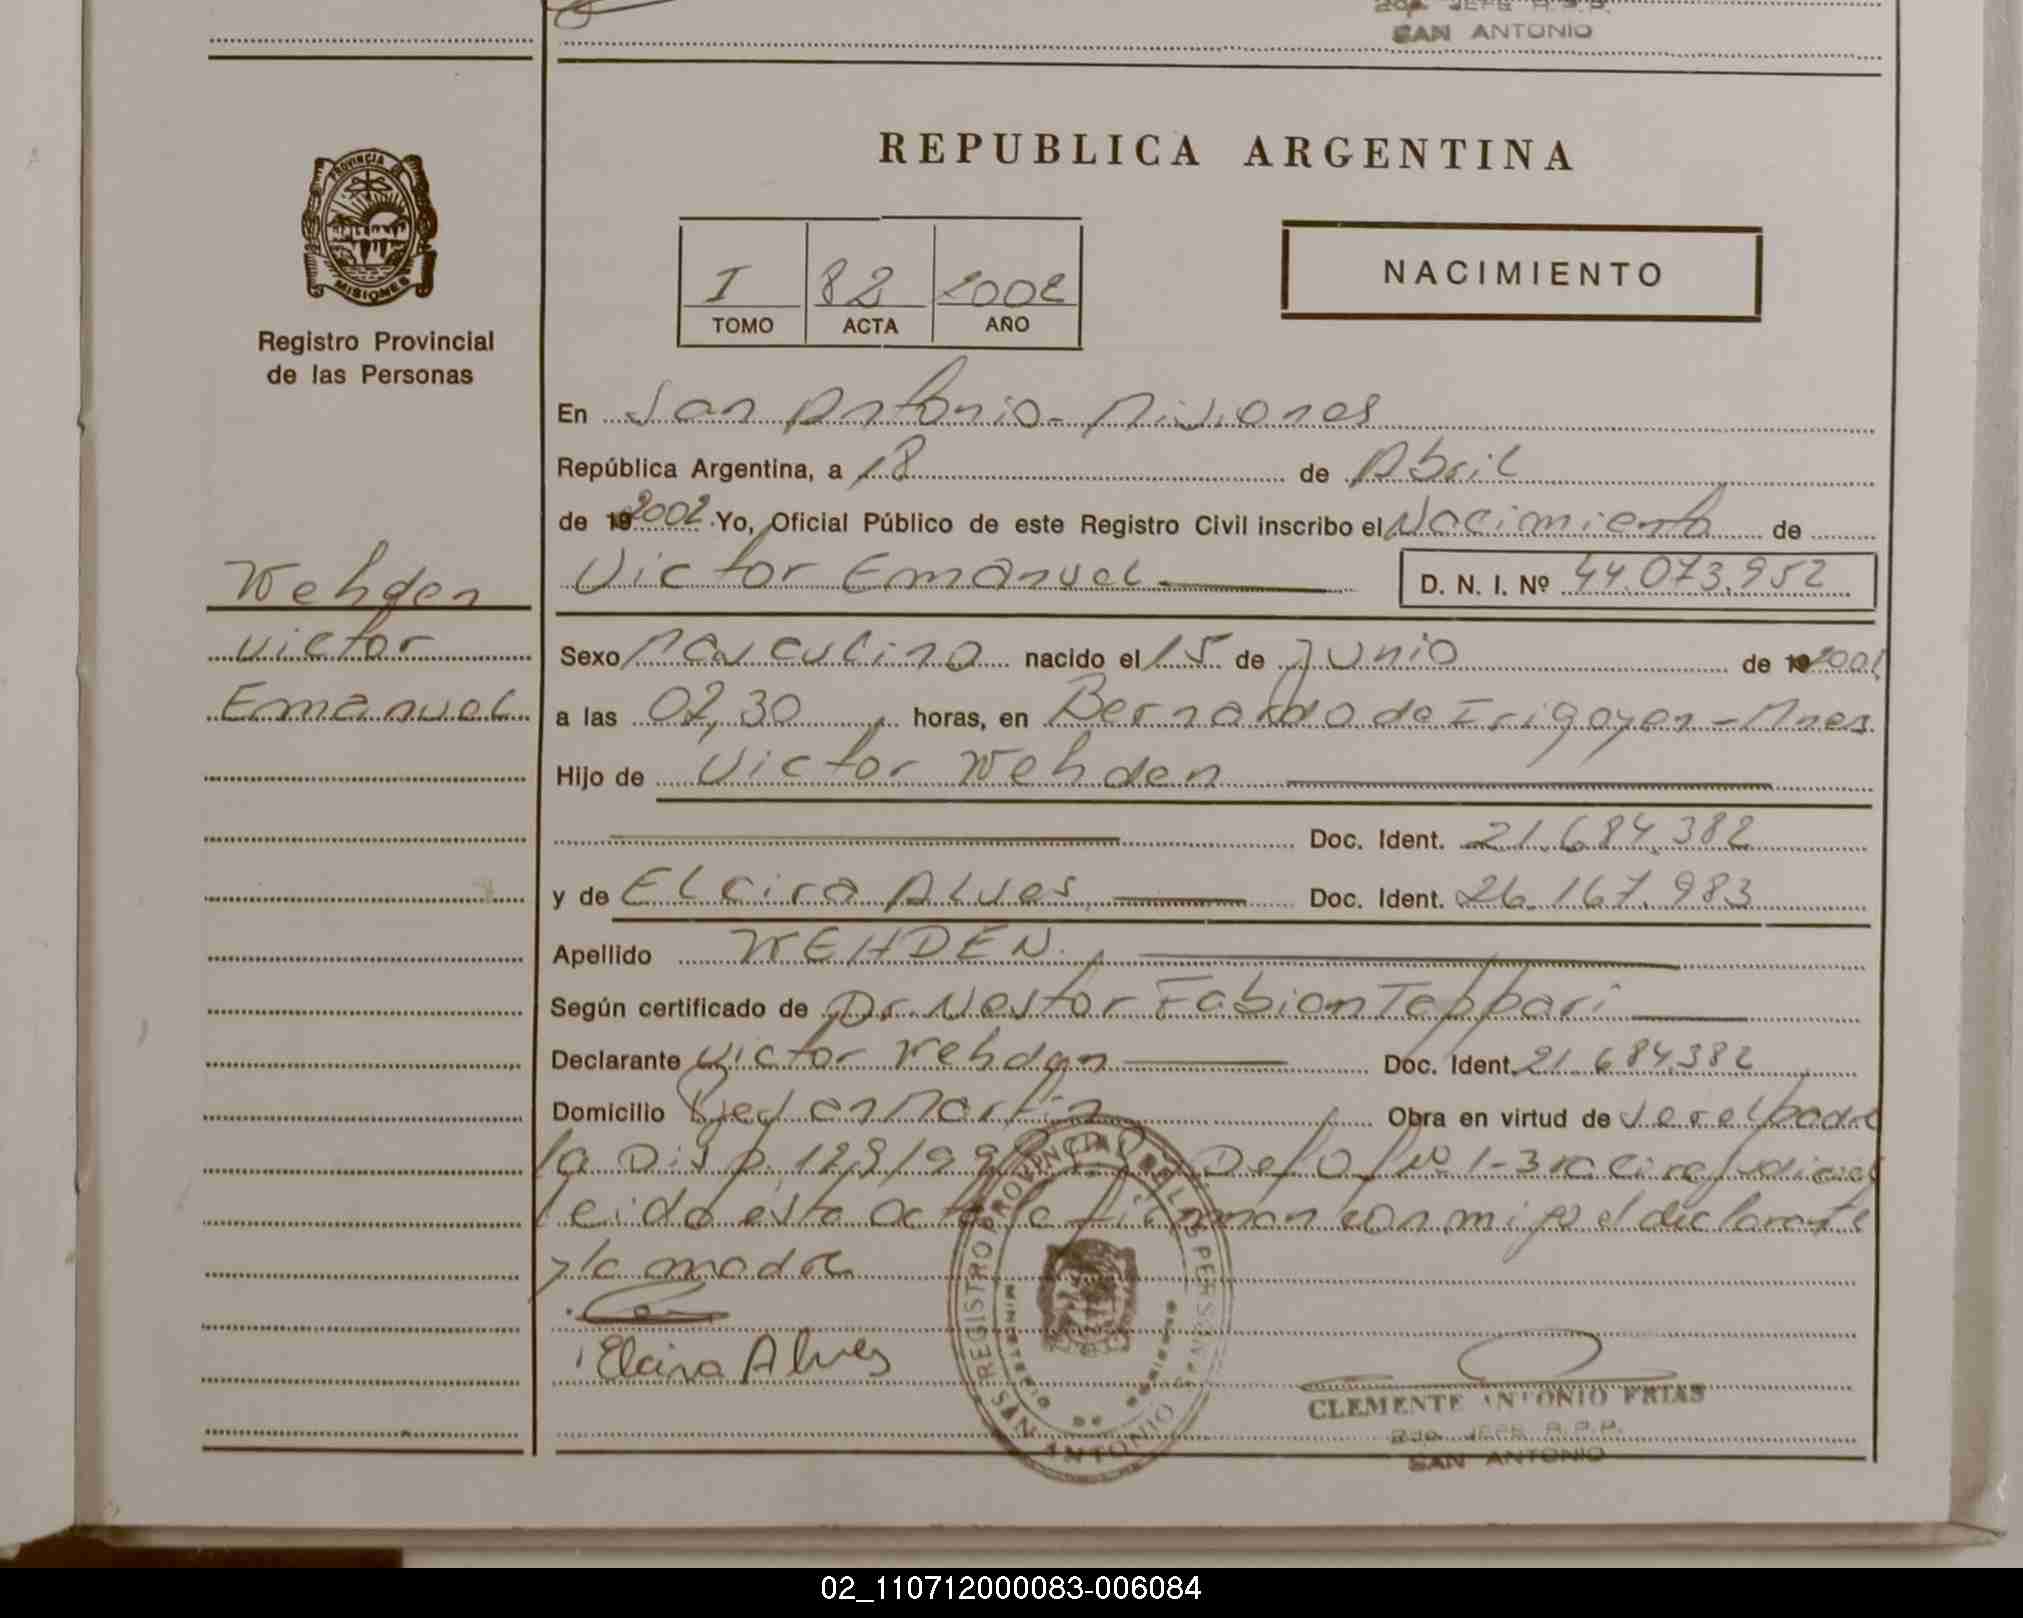 2do JEFE R.P.P.
SAN ANTONIO
REPUBLICA ARGENTINA
PROVINCIA DE
MISIONES
Registro Provincial
de las Personas
I 82 2002
TOMO ACTA AÑO
NACIMIENTO
En San Antonio - Misiones
República Argentina, a 18 de Abril
de 19 2002 Yo, Oficial Público de este Registro Civil inscribo el Nacimiento de
Wehden
Victor Emanuel D. N. I. Nº 44.073.952
Victor
Sexo Masculino nacido el 15 de Junio de 19 2001
Emanuel
a las 02,30 horas, en Bernardo de Irigoyen - Mnes
Hijo de Victor Wehden
Doc. Ident. 21.684.382
y de Elcira Alves Doc. Ident. 26.167.983
Apellido WEHDEN.
Según certificado de Dr. Nestor Fabian Tappari
Declarante Victor Wehden Doc. Ident. 21.684.382
Domicilio San Martin Obra en virtud de ser el padre
la Disp. 129/99 Nº 1-3
leido esta acta la firman conmigo el declarante
y la madre
Elcira Alves
REGISTRO PROVINCIAL DE LAS PERSONAS
MINISTERIO DE GOBIERNO
SAN ANTONIO
CLEMENTE ANTONIO FRIAS
2do JEFE R.P.P.
SAN ANTONIO
02_110712000083-006084